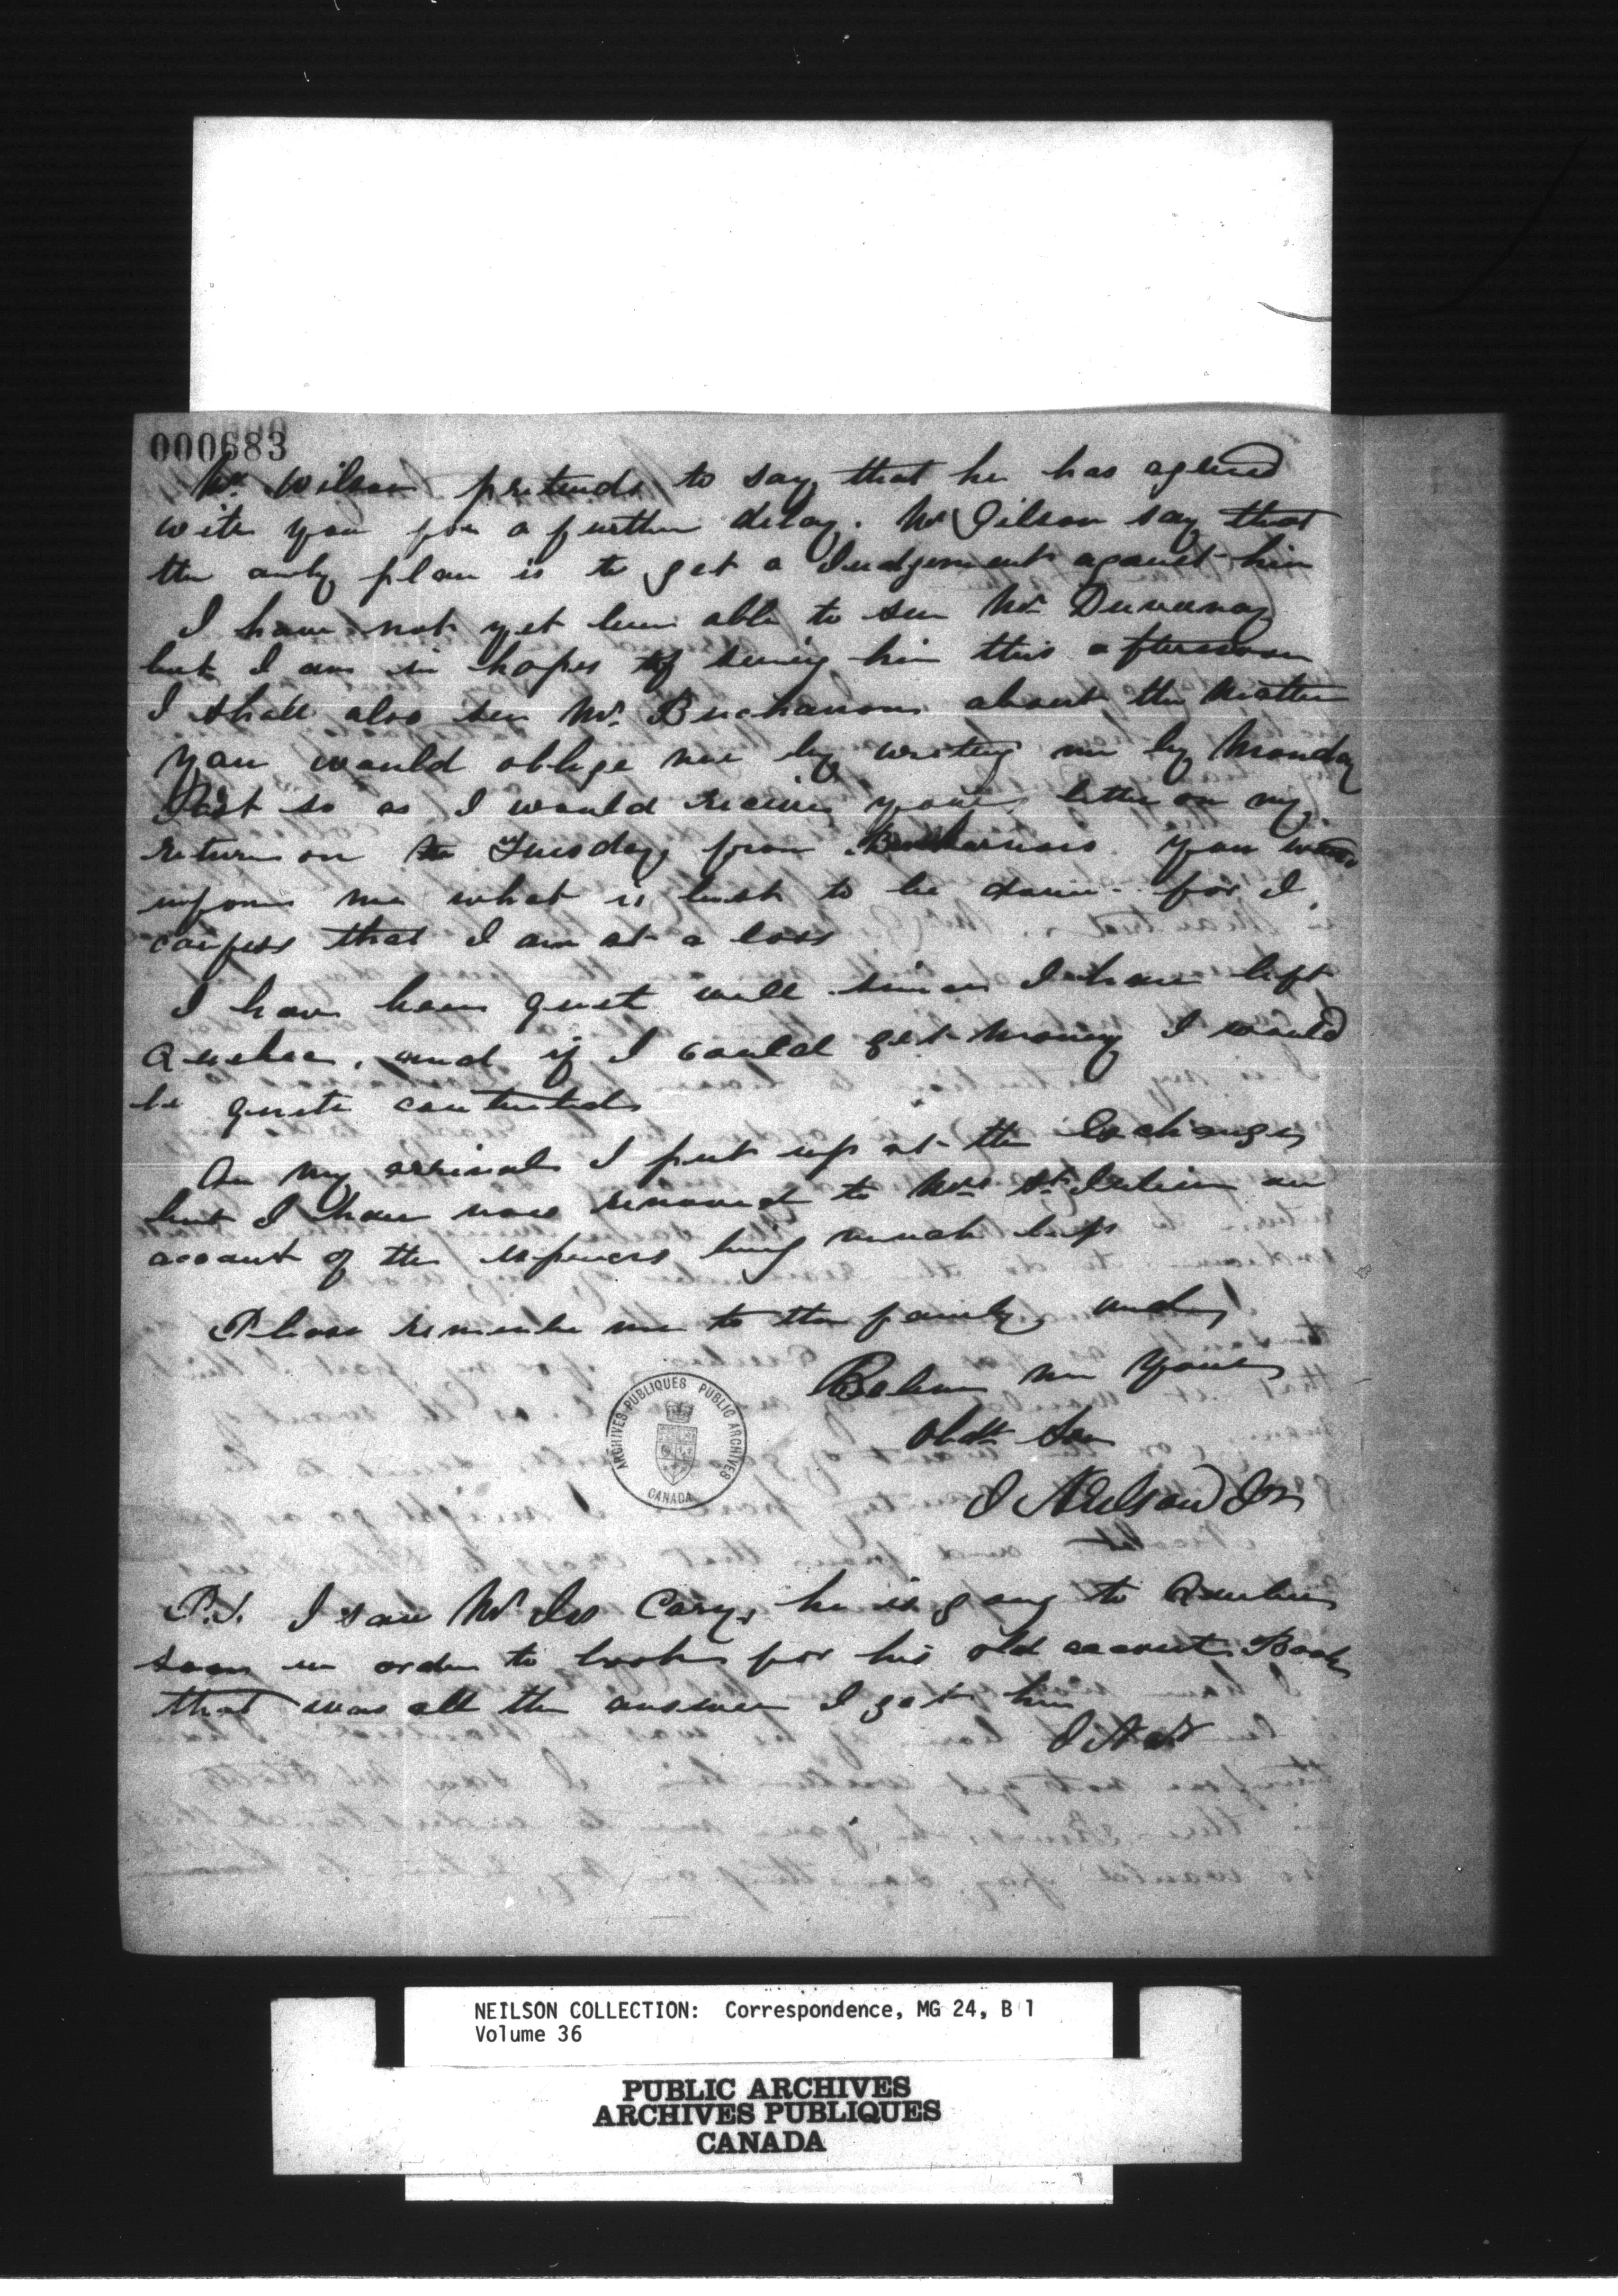 000683
Mr Wilson pretends to say that he has agreed
with you for a further delay. Mr Gilson say that
the only plan is to get a Judgement against him
I have not yet been able to see Mr Duvernay
but I am in hopes of seeing him this afternoon
I shall also see Mr. Buchanan about the matter
You would oblige me by writing me by Monday
Post so as I would receive your letter on my
return on Tuesday from Beauharnois. You
inform me what is best to be done for I
confess that I am at a loss
I have been quit well since I have left
Quebec. and if I could get money I would
be quite contented
On my arrival I put up at the Exchange
but I have now removed to Mrs St Julien on
account of the expences being much less
Please remember me to the family and
Believe me Yours
Obdt Son
J Neilson Jr
P.S. I saw Mr Jos Cary, he is going to Quebec
soon in order to look for his old account Book
that was all the answer I got him
J N Jr
ARCHIVES PUBLIQUES PUBLIC ARCHIVES
CANADA
NEILSON COLLECTION: Correspondence, MG 24, B 1
Volume 36
PUBLIC ARCHIVES
ARCHIVES PUBLIQUES
CANADA